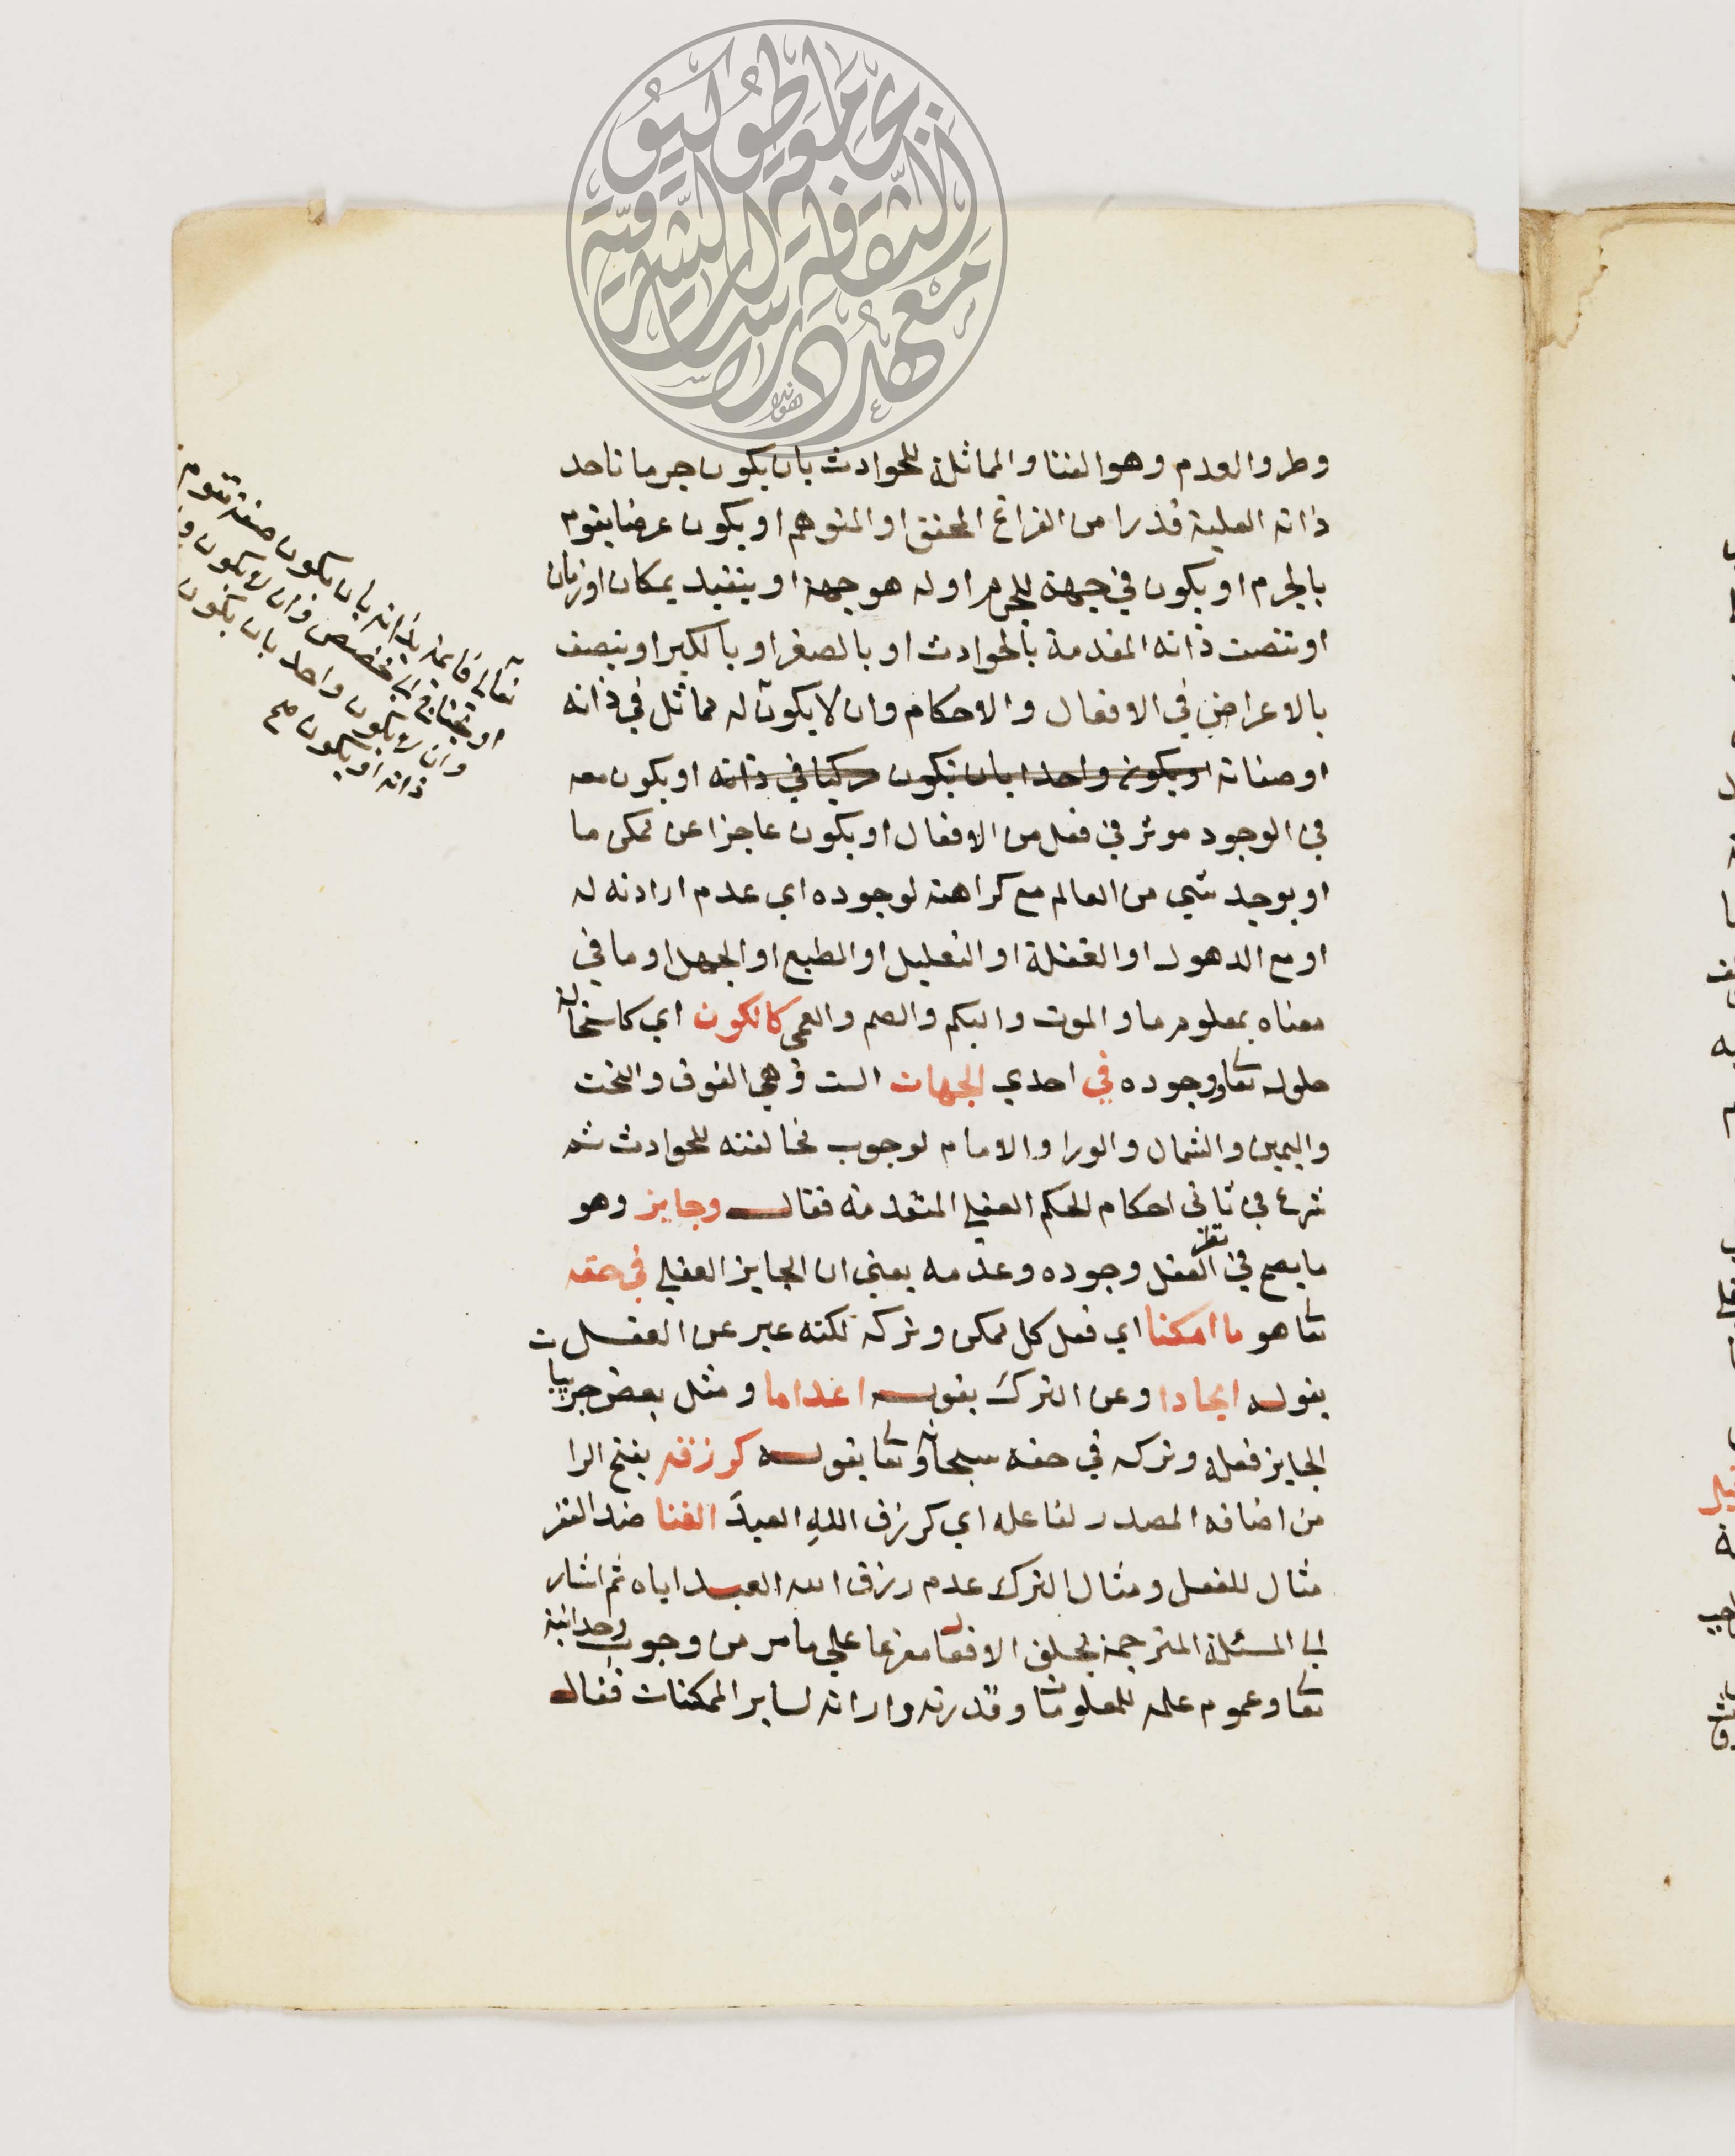 وطرو العدم وهو الفنا والمماثلة للحوادث بان يكون جرما تاخد
ذاته العلية قدرا من الفراغ المحقق او المتوهم او يكون عرضا يقوم
بالجرم او يكون في جهة للجرم او له هو جهة او يتقيد بمكان او زمان
او تتصف ذاته المقدسة بالحوادث او بالصغر او بالكبر او يتصف
بالاعراض في الافعال والاحكام وان لا يكون له مماثل في ذاته
او صفاته او يكون واحدا بان يكون مركبا في ذاته او يكون معه
في الوجود موثر في فعل من الافعال او يكون عاجزا عن ممكن ما
او يوجد شي من العالم مع كراهته لوجوده اي عدم ارادته له
او مع الدهول او الغفلة او التعليل او الطبع او الجهل او ما في
معناه بمعلوم ما والموت والبكم والصم والعمى كالكون اي كاستحالة
حلوله تعا ووجوده في احدي الجهات الست وهي الفوق والتحت
واليمين والشمال والورا والامام لوجوب مخالفته للحوادث ثم
شرع في ثاني احكام الحكم العقلي المتقدمة فقال وجايز وهو
ما يصح في نظر العقل وجوده وعدمه يعني ان الجايز العقلي في حقه
تعا هو ما امكنا اي فعل كل ممكن وتركه لكنه عبر عن الفعل
بقوله ايجادا وعن الترك بقوله اعداما ومثل بعض جزييات
الجايز فعله وتركه في حقه سبحانه وتعا بقوله كرزقه بفتح الرا
من اضافه المصدر لفاعله اي كرزق الله العبد الغنا ضد الفقر
مثال للفعل ومثال الترك عدم رزق الله العبد اياه ثم اشار
الى المسئلة المترجمة بخلق الافعال مفرعا علي ما مر من وجوب وحدانية
تعا وعموم علمه للمعلومات وقدرته وارادته لساير الممكنات فقال
تعالى قايمة بذاته بان يكون صفة تقوم
او يحتاج الى مخصص وان لا يكون
وان لا يكون واحد بان يكون
ذاته او يكون صح
جامعة طوكيو
الثقافة
الدراسات الشرقية
معهد